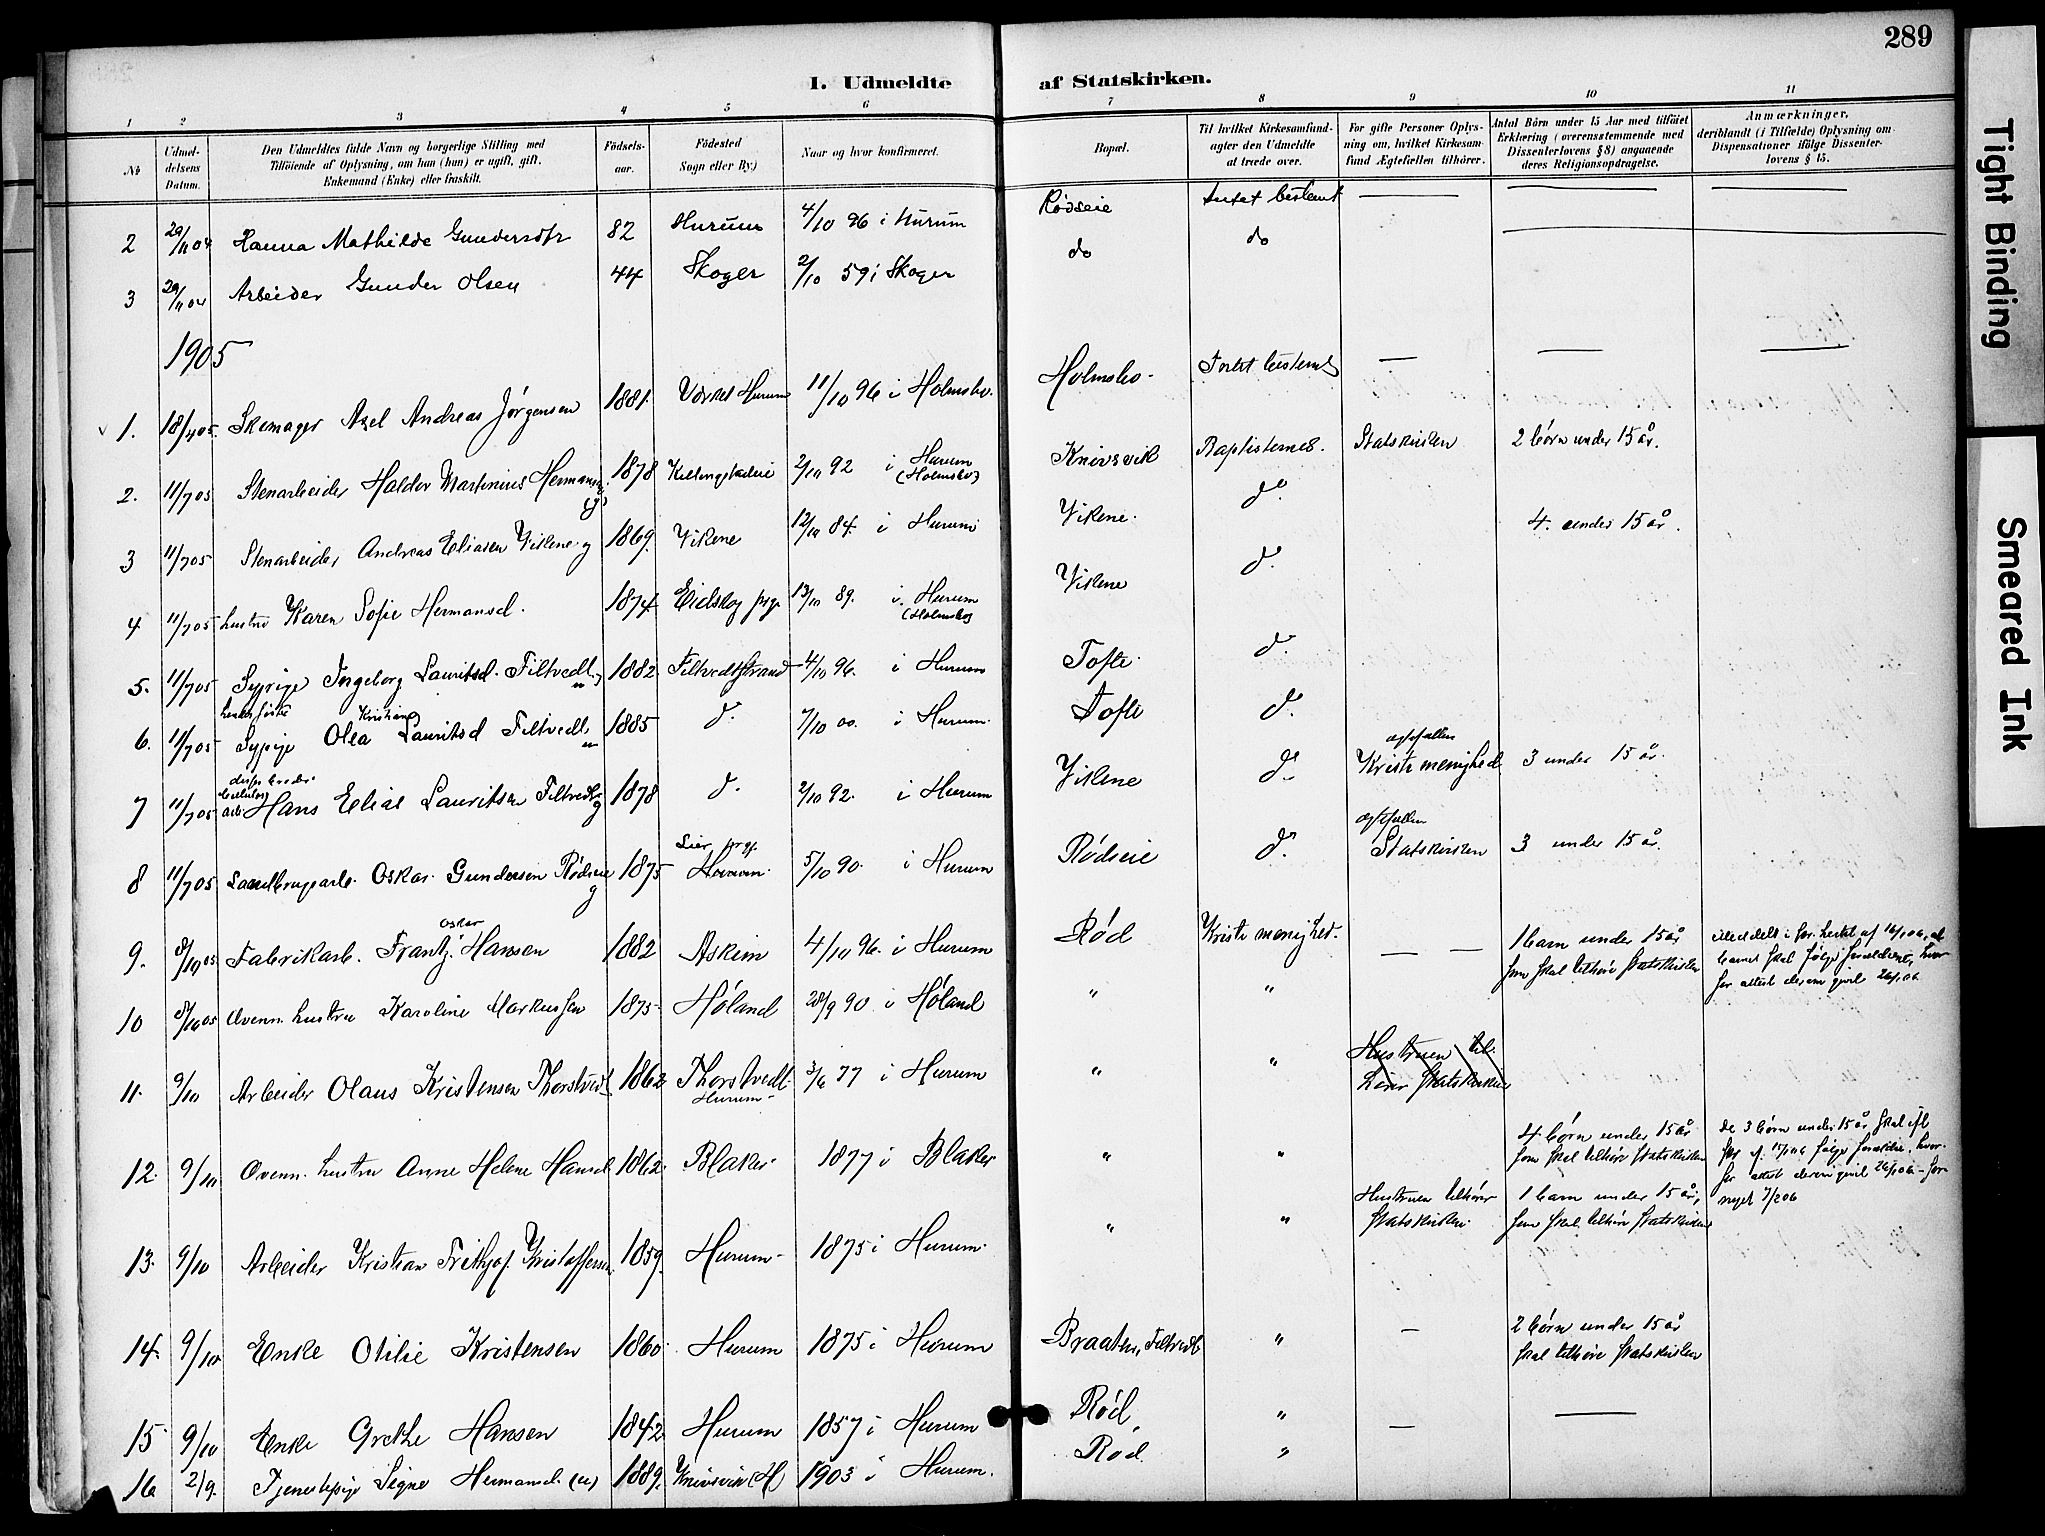 289
I. Udmeldte af Statskirken.
1 2 3 4 5 6 7 8 9 10 11
No
Udmeldelsens Datum.
Den Udmeldtes fulde Navn og borgerlige Stilling med
Tilføiende af Oplysning, om han (hun) er ugift, gift,
Enkemand (Enke) eller fraskilt.
Fødselsaar.
Fødested
Sogn eller By.)
Naar og hvor konfirmeret.
Bopæl.
Til hvilket Kirkesamfund
agter den Udmeldte
at træde over.
For gifte Personer Oplys-
ning om, hvilket Kirkesam-
fund Ægtefællen tilhører.
Antal Børn under 15 Aar med tilføiet
Erklæring (overensstemmende med
Dissenterlovens § 8) angaaende
deres Religionsopdragelse.
Anmærkninger,
deriblandt (i Tilfælde) Oplysning om
Dispensationer ifølge Dissenter-
lovens § 15.
2 29/11 04 Hanna Mathilde Gundersdtr 82 Hurum 4/10 96 i Hurum Rødseie Intet bestemt — — —
3 29/11 04 Arbeider Gunder Olsen 44 Skoger 2/10 59 i Skoger do do
1905
1. 18/4 05. Skomager Axel Andreas Jørgensen 1881. Værket Hurum 11/10 96 i Holmsbo. Holmsbo. Intet bestemt — — —
2. 11/7 05 Stenarbeider Halvor Martinius Hermansen g 1878 2/10 92 i Hurum (Holmsbo) Knivsvik Baptisternes. Statskirken 2 børn under 15 år.
3 11/7 05 Stenarbeider Andreas Eliasen Vikene g 1869. Vikene 12/10 84. i Hurum Vikene. do 4. under 15 år.
4 11/7 05 hustru Karen Sofie Hermansd. 1874 Eidskog prgj. 13/10 89. i Hurum (Holmsbo) Vikene do
5. 11/7 05 Sypige Ingeborg Lauritsd. Filtvedt u 1882. Filtvedtstrand 4/10 96. i Hurum Tofte. do
6. 11/7 05 Sypige Olea Kristiane Lauritsd Filtvedt u 1885 do 7/10 00. i Hurum. Tofte do
7 11/7 05 arb. Hans Elias Lauritsen Filtvedt g 1878 do 2/10 92. i Hurum Vikene do ægtefællen Kristi menighed 3 under 15 år.
8 11/7 05 Landbrugsarb. Oskar Gundersen Rødseie g 1875 Lier prgj. Hurum. 5/10 90. i Hurum Rødseie do ægtefællen Statskirken 3 under 15 år.
9. 8/10 05 Fabrikarb. Frantz Oskar Hansen 1882 Askim 4/10 96. i Hurum Rød Kristi menighed. — 1 barn under 15 år
som skal tilhøre Statskirken
10 8/10 05 Ovenn. hustru Karoline Markussen 1875 Høland 28/9 90 i Høland " "
11. 9/10 Arbeider Olaus Kristensen Thorstvedt 1862 Thorstvedt Hurum 3/6 77 i Hurum " " Hustruen til-
hører Statskirken
12. 9/10 Ovenn. hustru Anne Helene Hansd. 1862. Blaker 1877 i Blaker " " 4 børn under 15 år
som skal tilhøre Statskirken
13. 9/10 Arbeider Kristian Frithjof Kristoffersen 1859. Hurum 1875 i Hurum. " " Hustruen tilhører
Statskirken. 1 barn under 15 år,
som skal tilhøre Statskirken
14. 9/10 Enke Otilie Kristensen 1860. Hurum 1875 i Hurum Braaten, Filtvedt " — 2 børn under 15 år
skal tilhøre Statskirken
15 9/10 Enke Grethe Hansen 1842 Hurum 1857 i Hurum Rød " — —
16 2/9. Tjenestepige Signe Hermansd. (u) 1889. Knivsvik (H) 1903 i Hurum. Rød. "
Tight Binding
Smeared Ink